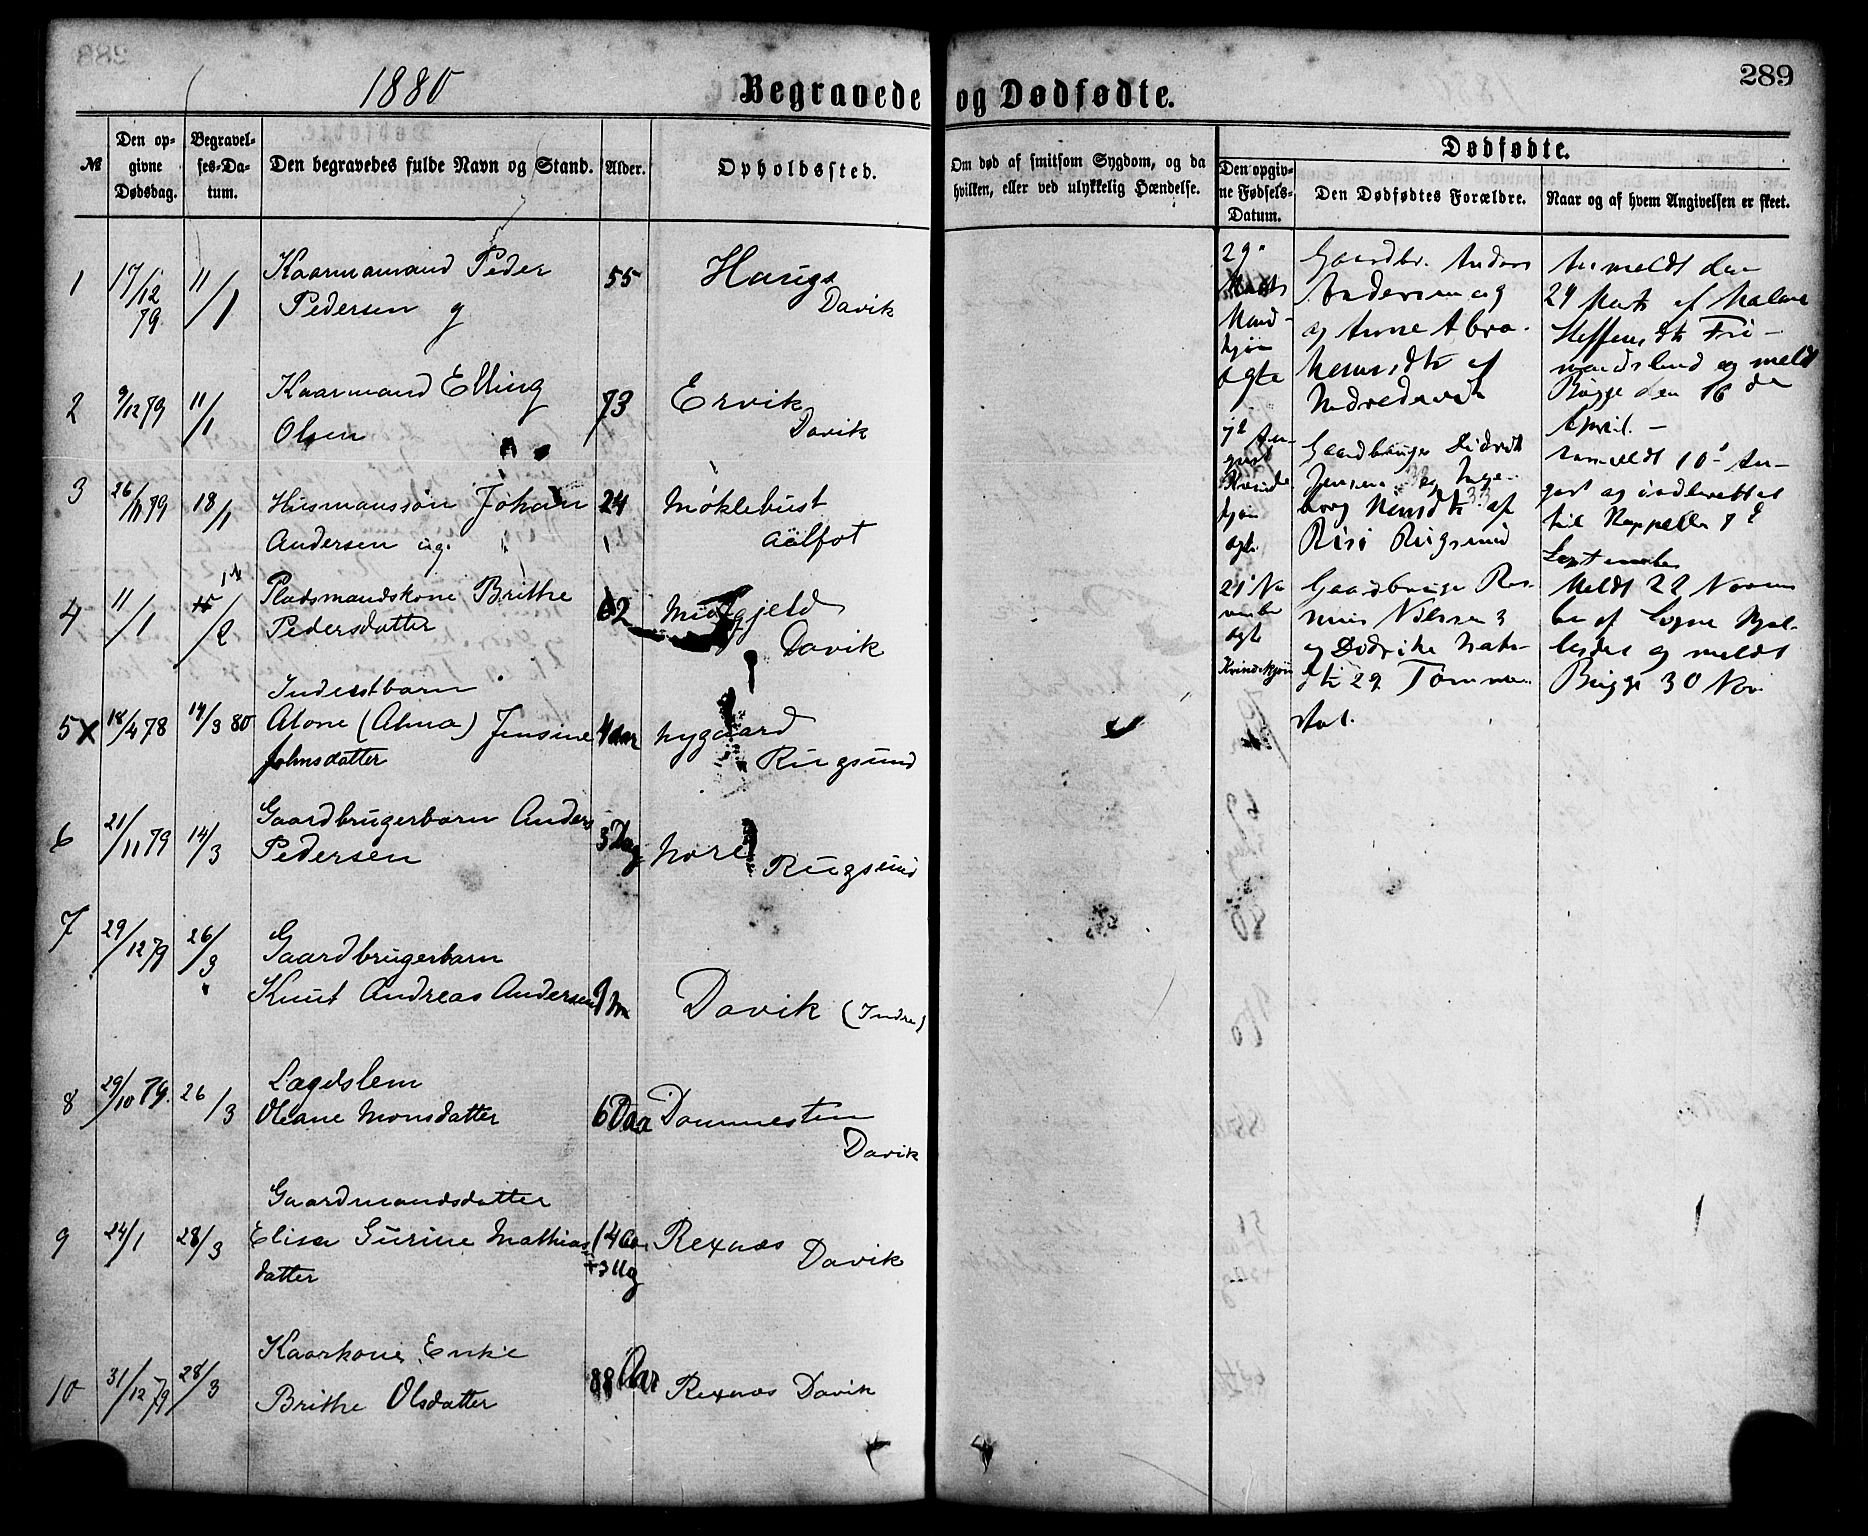 1880
Begravede og Dødfødte.
289
№
Den op-
givne
Dødsdag.
Begravel-
ses-Da-
tum.
Den begravedes fulde Navn og Stand.
Alder.
Opholdssted.
Om død af smitsom Sygdom, og da
hvilken, eller ved ulykkelig Hændelse.
Dødfødte.
Den opgiv-
ne Fødsels-
Datum.
Den Dødfødtes Forældre.
Naar og af hvem Angivelsen er skeet.
1 17/12 79 11/1 Kaarmamand Peder 55 Haugs
Pedersen g Davik
2 9/12 79 11/1 Kaarmand Elling 73 Ervik
Olsen Davik
3 26/11 79 18/1 Husmanssøn Johan 24 Møklebust
Andersen ug. Aalfot
4 11/1 /2 Pladsmandskone Brithe 62
Pedersdatter Davik
Inderstbarn
5 x 18/4 78 14/3 80 Alone (Alma) Jensine Nygaard
Johnsdatter Rugsund
6 21/11 79 14/3 Gaardbrugerbarn Anders 3 Dag Nore
Pedersen Rugsund
7 29/12 79 26/3 Gaardbrugerbarn
Knut Andreas Andersen Davik (Indre)
Lægdslem
8 29/10 79. 26/3 Oleane Monsdatter Dommesten
Davik
Gaardmandsdatter
9 24/1 28/3 Elisa Gurine Mathias 14 Rexnæs Davik
datter
Kaarkone Enke
10 31/12 79 28/3 Brithe Olsdatter 88 Aar Rexnæs Davik
29
Marts
Mand-
kjøn
ægte
Gaardbr. Anders
Andersen og
og Anne Abra-
hamsdtr af
Anmeldt den
29 Marts af Malene
Steffensdtr Fri-
mandslund og meldt
Bugge den 16 de
April. –
Au-
gust
Kvinde
kjøn
ægte
Gaardbruger Didrik
Jensen og Inge-
borg af
Rugsund
anmeldt 10 Au-
gust og indberettet
til Kappellan
September
21 No
vember
ægte
Kvindekjøn
Gaardbruger Ras-
mus Nilsen
og Didrike Mats-
dtr 29
Meldt 22 Novem
ber af
og meldt
Bugge 30 Nov